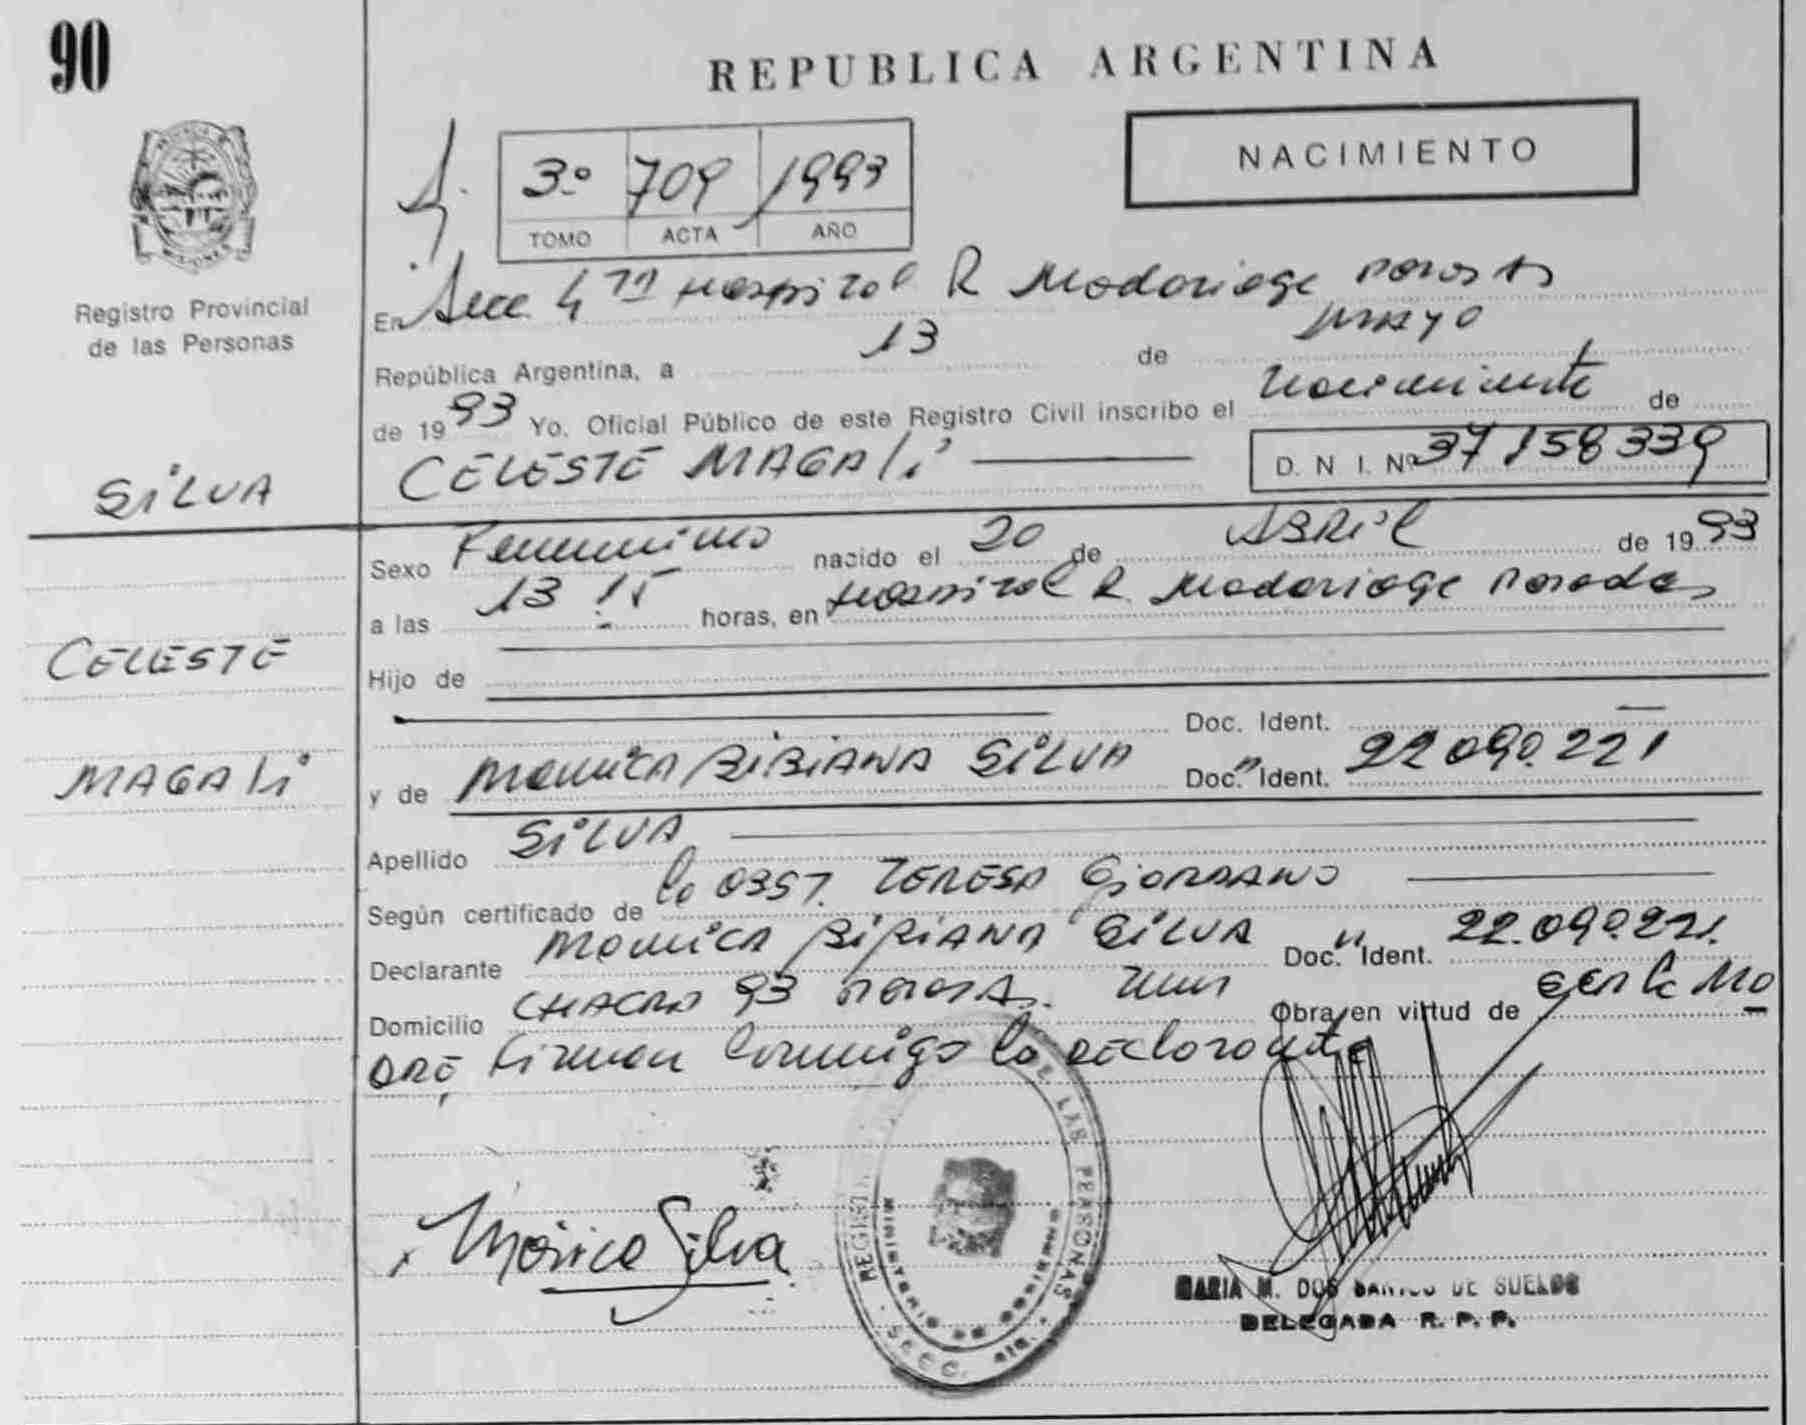 90
REPUBLICA ARGENTINA
NACIMIENTO
3º 709 1993
TOMO ACTA AÑO
Registro Provincial
de las Personas
En Secc. 4ta Hospital R Madariaga Posadas
República Argentina, a 13 de mayo
de 1993 Yo. Oficial Público de este Registro Civil inscribo el nacimiento de
CELESTE MAGALi D. N I. Nº 37158339
SiLVA
CELESTE
MAGALi
Sexo Femenino nacido el 20 de ABRiL de 1993
a las 13:15 horas, en Hospital R. Madariaga Posadas
Hijo de
Doc. Ident.
y de MONiCA BiBiANA SiLVA Doc. Ident. 22090.221
Apellido SiLVA
Según certificado de la OBST. TERESA GiORDANO
Declarante MONiCA BiBiANA SiLVA Doc. Ident. 22.090.221.
Domicilio CHACRA 93 Obra en virtud de ser la MA
DRE, Firman Conmigo la declarante
Mónica Silva
REGISTRO DE LAS PERSONAS
MINISTERIO DE GOBIERNO
SECC.
MARIA M. DOS SANTOS DE SUELDO
DELEGADA R. P. P.